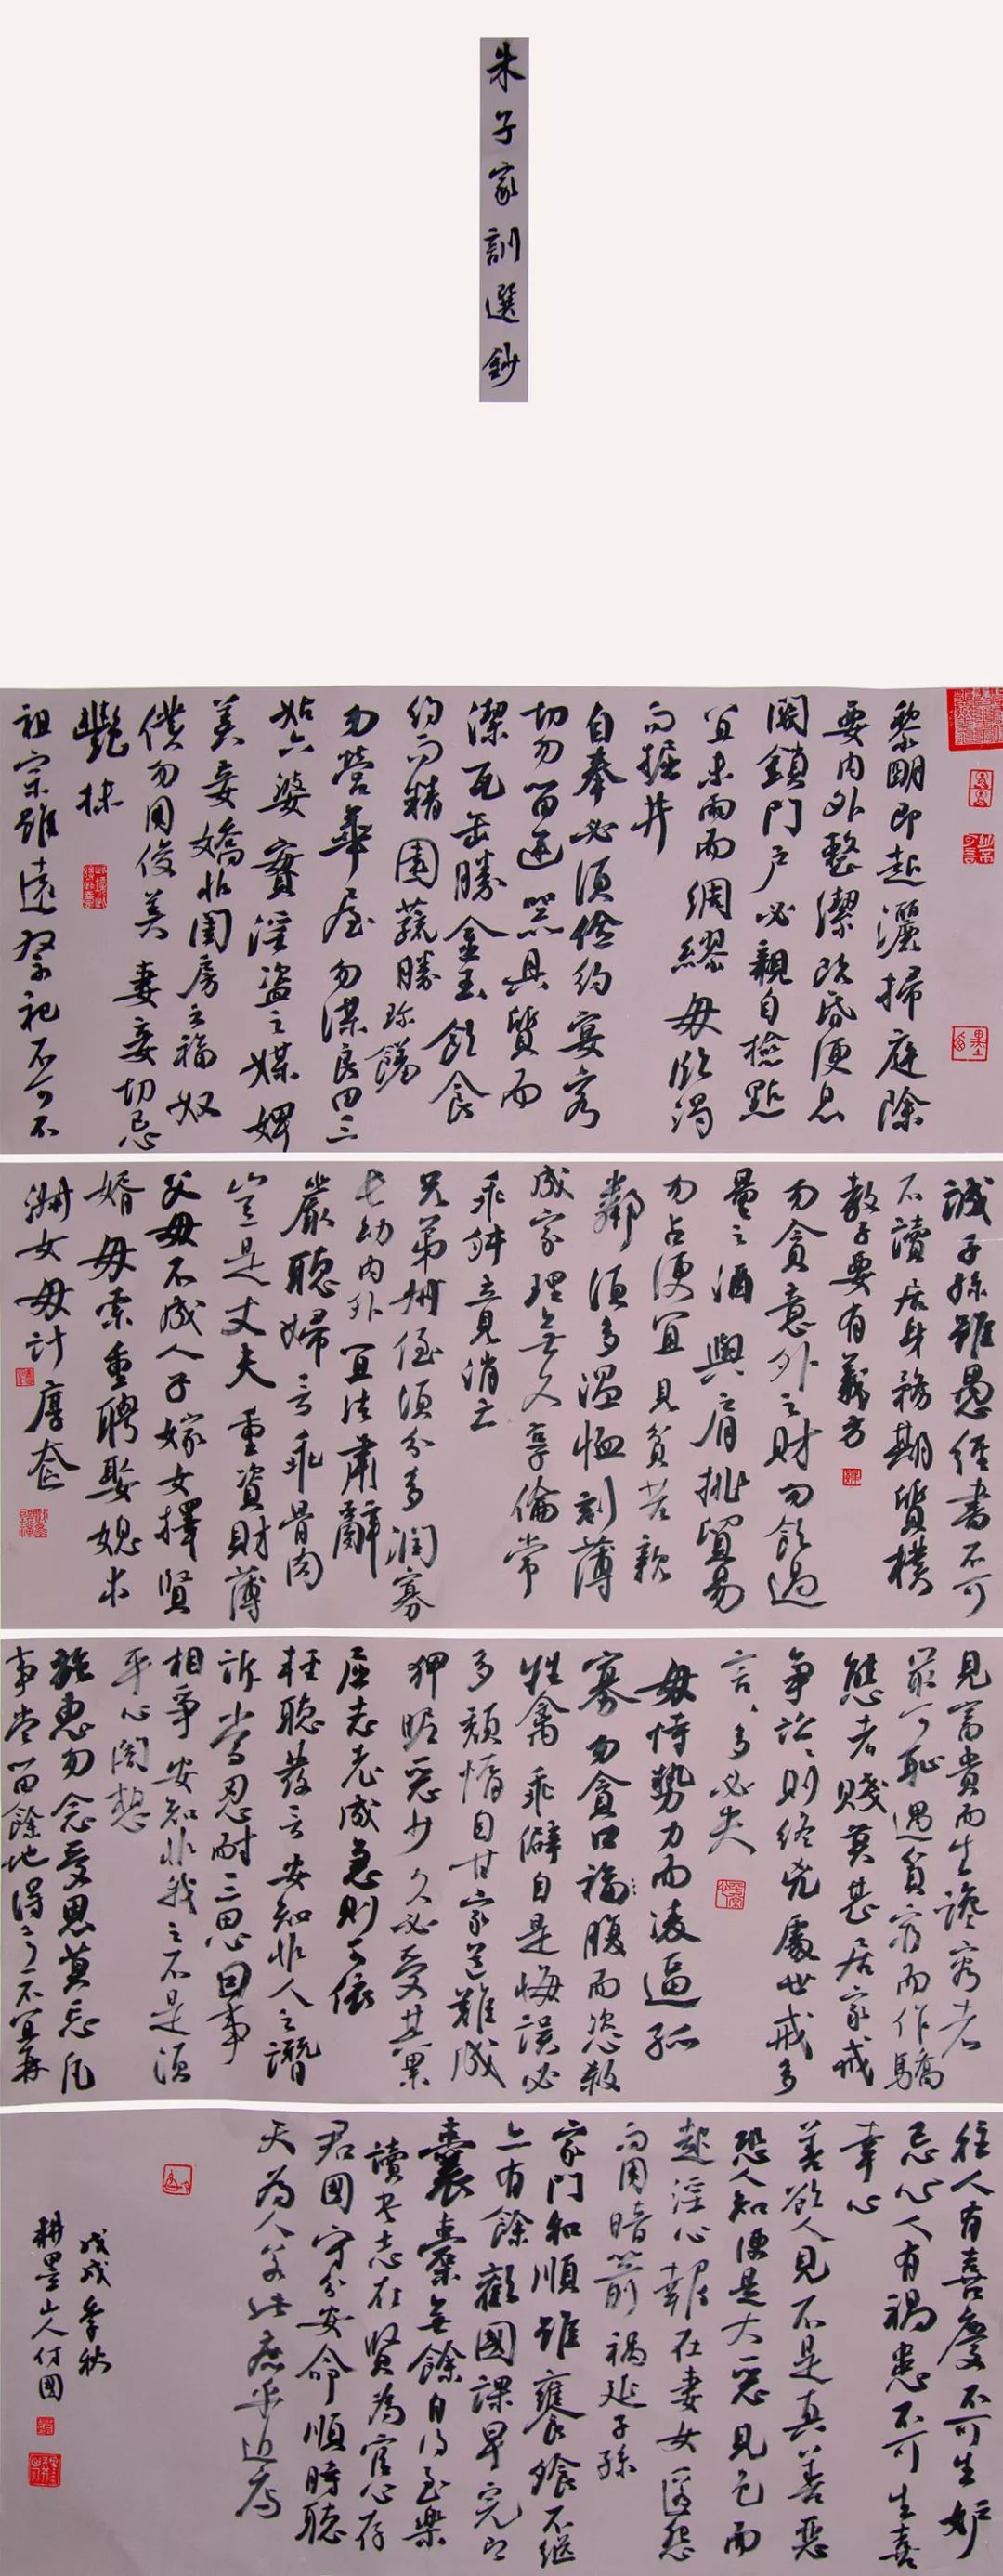 朱子家訓選鈔
黎明即起灑掃庭除
要内外整潔既昏便息
關鎖門戶必親自檢點
宜未雨而綢繆毋臨渴
而掘井
自奉必須儉約宴客
切勿留連器具質而
潔瓦缶勝金玉飲食
約而精園蔬勝珍饈
勿營華屋勿謀良田三
姑六婆實淫盜之媒婢
美妾嬌非閨房之福奴
僕勿用俊美妻妾切忌
艷抹
祖宗雖遠祭祀不可不
誠子孫雖愚經書不可
不讀居身務期質樸
教子要有義方
勿貪意外之財勿飲過
量之酒與肩挑貿易
勿占便宜見貧苦親
鄰須多溫恤刻薄
成家理無久享倫常
乖舛立見消亡
兄弟叔侄須分多潤寡
長幼内外宜法肅辭
嚴聽婦言乖骨肉
豈是丈夫重資財薄
父母不成人子嫁女擇賢
婿毋索重聘娶媳求
淑女毋計厚奩
見富貴而生諂容者
最可恥遇貧窮而作驕
態者賤莫甚居家戒
争訟訟則終兇處世戒多
言言多必失
毋恃勢力而凌逼孤
寡勿貪口福腹而恣殺
牲禽乖僻自是悔誤必
多頹惰自甘家道難成
狎昵惡少久必受其累
屈志老成急則可依
輕聽發言安知非人之譖
訴當忍耐三思因事
相爭安知非我之不是須
平心闇想
施惠勿念受恩莫忘凡
事當留餘地得意不宜再
往人有喜慶不可生妒
忌心人有禍患不可生喜
幸心
善欲人見不是真善惡
恐人知便是大惡見色而
起淫心報在妻女匿怨
而用暗箭禍延子孫
家門和順雖饔飧不繼
亦有餘歡國課早完即
囊橐無餘自得至樂
讀書志在賢為官心存
君國守分安命順時聽
天為人若此庶乎近焉
戊戌季秋
耕墨山人付國